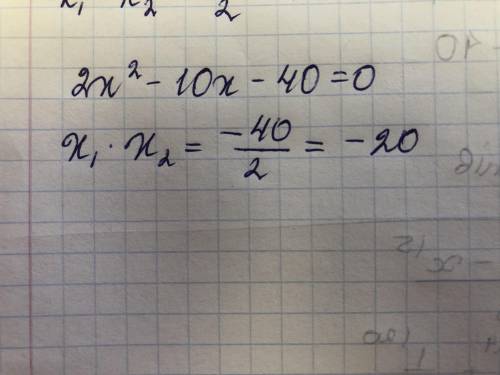 x₁ x₂ 2
2x² - 10x - 40 = 0
x₁ · x₂ = -40/2 = -20